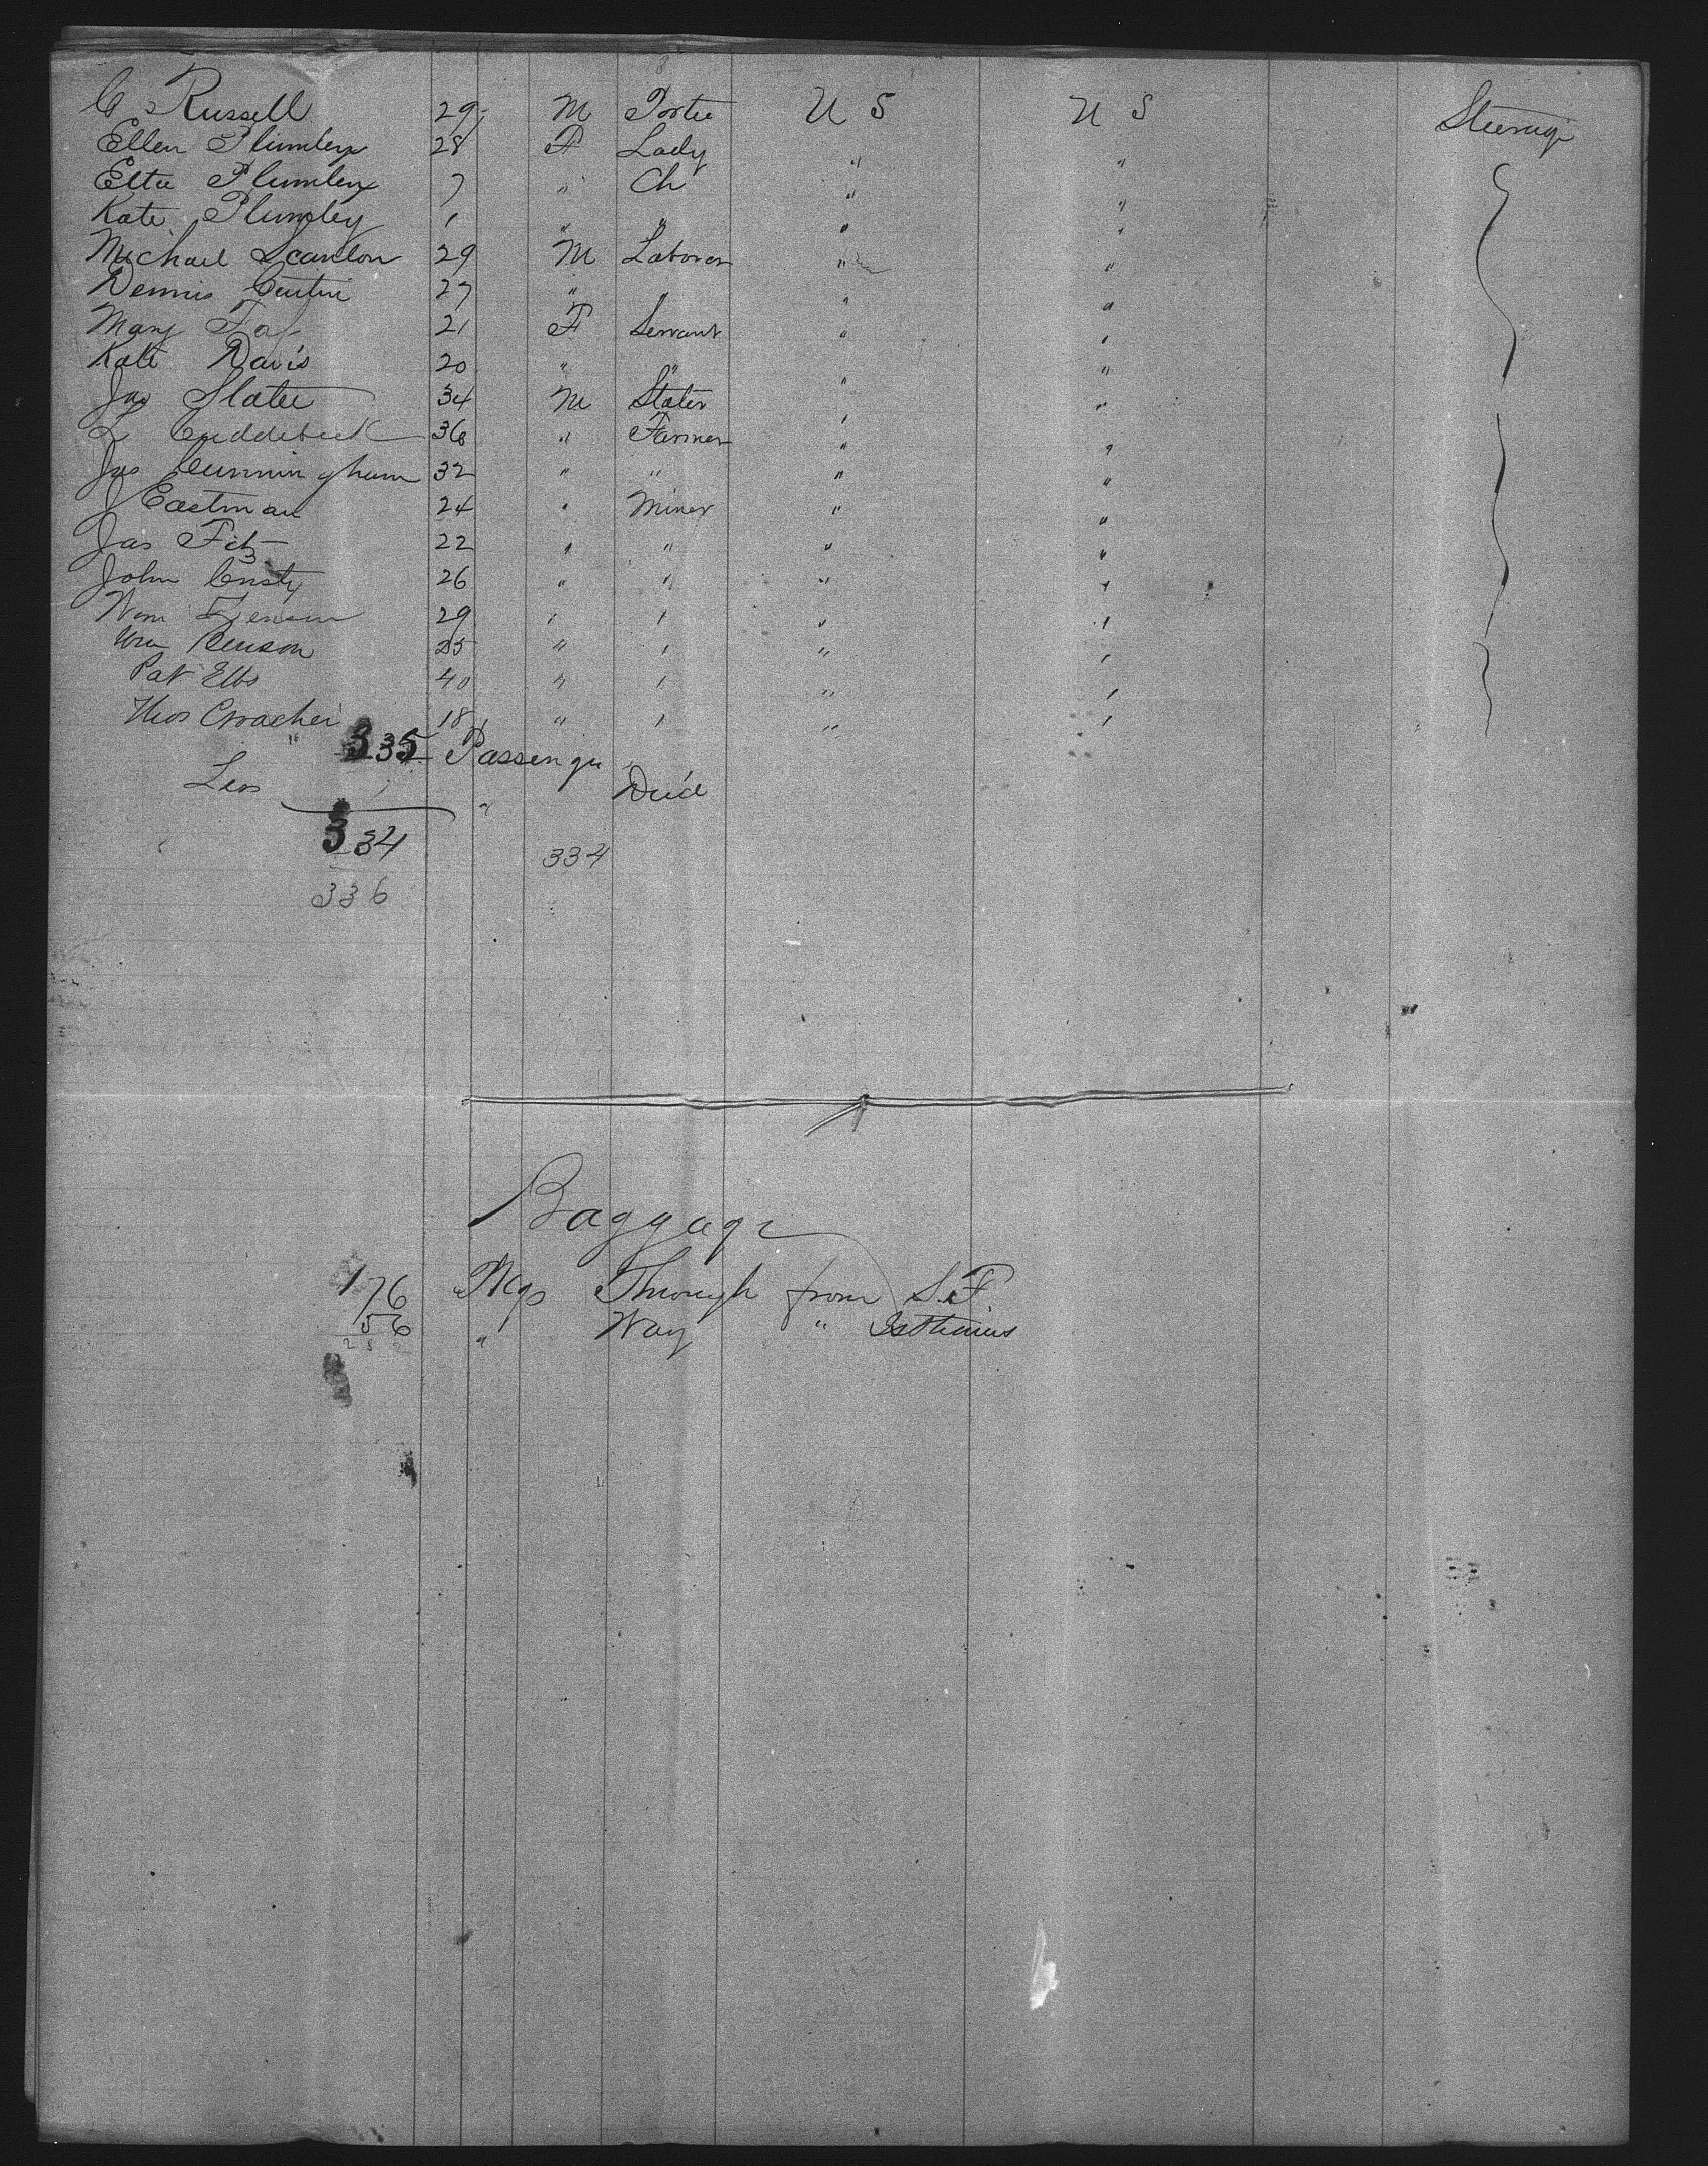 C Russell 29 M Porter U S U S Steerage
Ellen Plumley 28 F Lady " "
Etta Plumley 7 " Ch " "
Kate Plumley 1 " " " "
Michael Scanlon 29 M Laborer " "
Dennis 27 " " " "
Mary 21 F Servant " "
Kate Davis 20 " " " "
Jas Slater 34 M Slater " "
L Cuddeback 36 " Farmer " "
Jas Cunningham 32 " " " "
J Eastman 24 " Miner " "
Jas Fitz 22 " " " "
John 26 " " " "
Wm 29 " " " "
Wm Benson 25 " " " "
Pat 40 " " " "
Thos 18 " " " "
335 Passenge
Less 1 " Died
334 334
336
Baggage
176 Pkgs Through from S.F
56 " Way " Isthmus